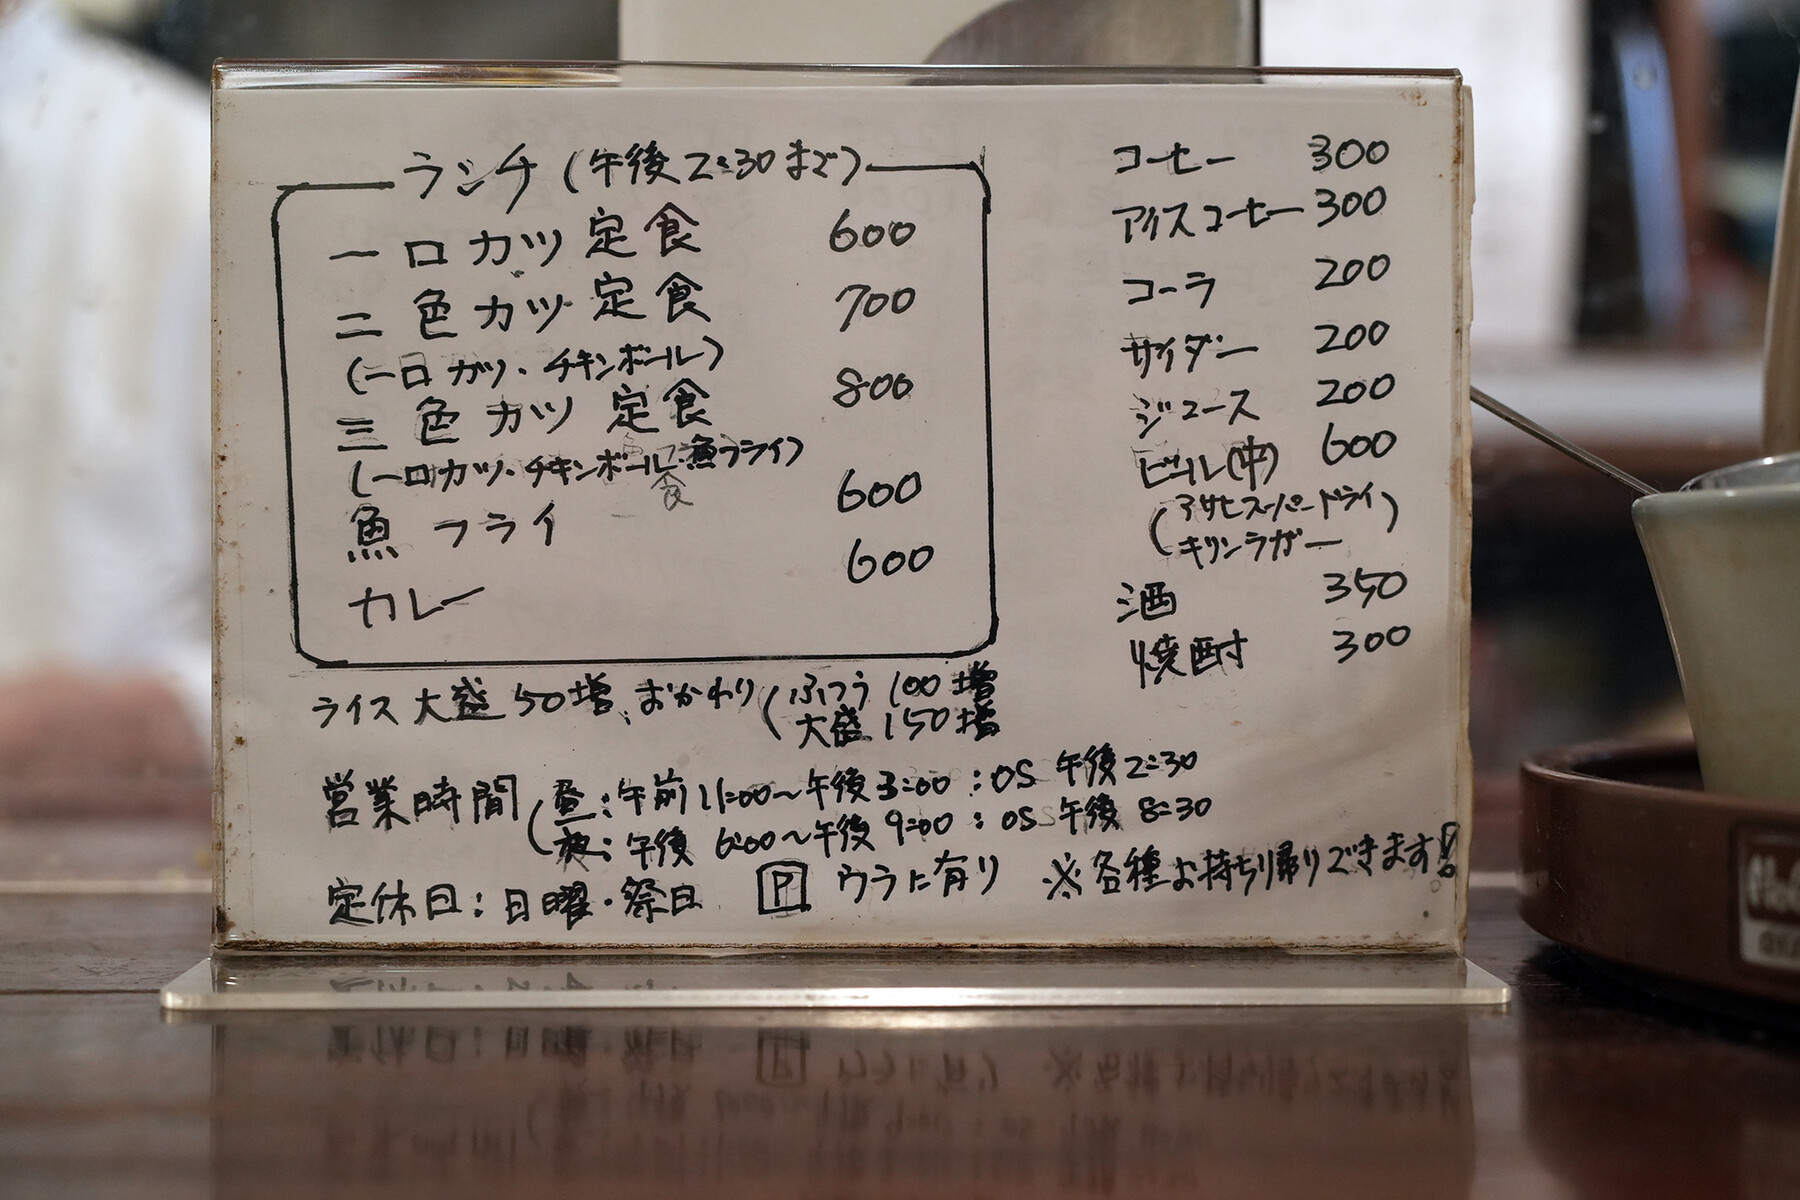 ランチ(午後2:30まで)
一口カツ定食 600
二色カツ定食 700
(一口カツ・チキンボール)
三色カツ定食 800
(一口カツ・チキンボール・魚フライ)
魚フライ 600
カレー 600
ライス大盛50増、おかわり(ふつう100増
大盛150増
コーヒー 300
アイスコーヒー 300
コーラ 200
サイダー 200
ジュース 200
ビール(中) 600
(アサヒスーパードライ
キリンラガー)
酒 350
焼酎 300
営業時間(昼:午前11:00〜午後3:00:OS 午後2:30
夜:午後6:00〜午後9:00:OS 午後8:30
定休日:日曜・祭日 P ウラに有り ※各種お持ち帰りできます!